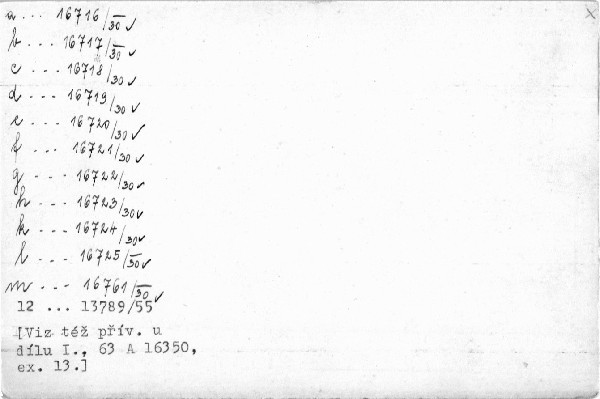 a ... 16716/30 ✓
b ... 16717/30 ✓
c ... 16718/30 ✓
d ... 16719/30 ✓
e ... 16720/30 ✓
f ... 16721/30 ✓
g ... 16722/30 ✓
h ... 16723/30 ✓
k ... 16724/30 ✓
l ... 16725/30 ✓
m ... 16761/30 ✓
12 ... 13789/55
[Viz též přív. u
dílu I., 63 A 16350,
ex. 13.]